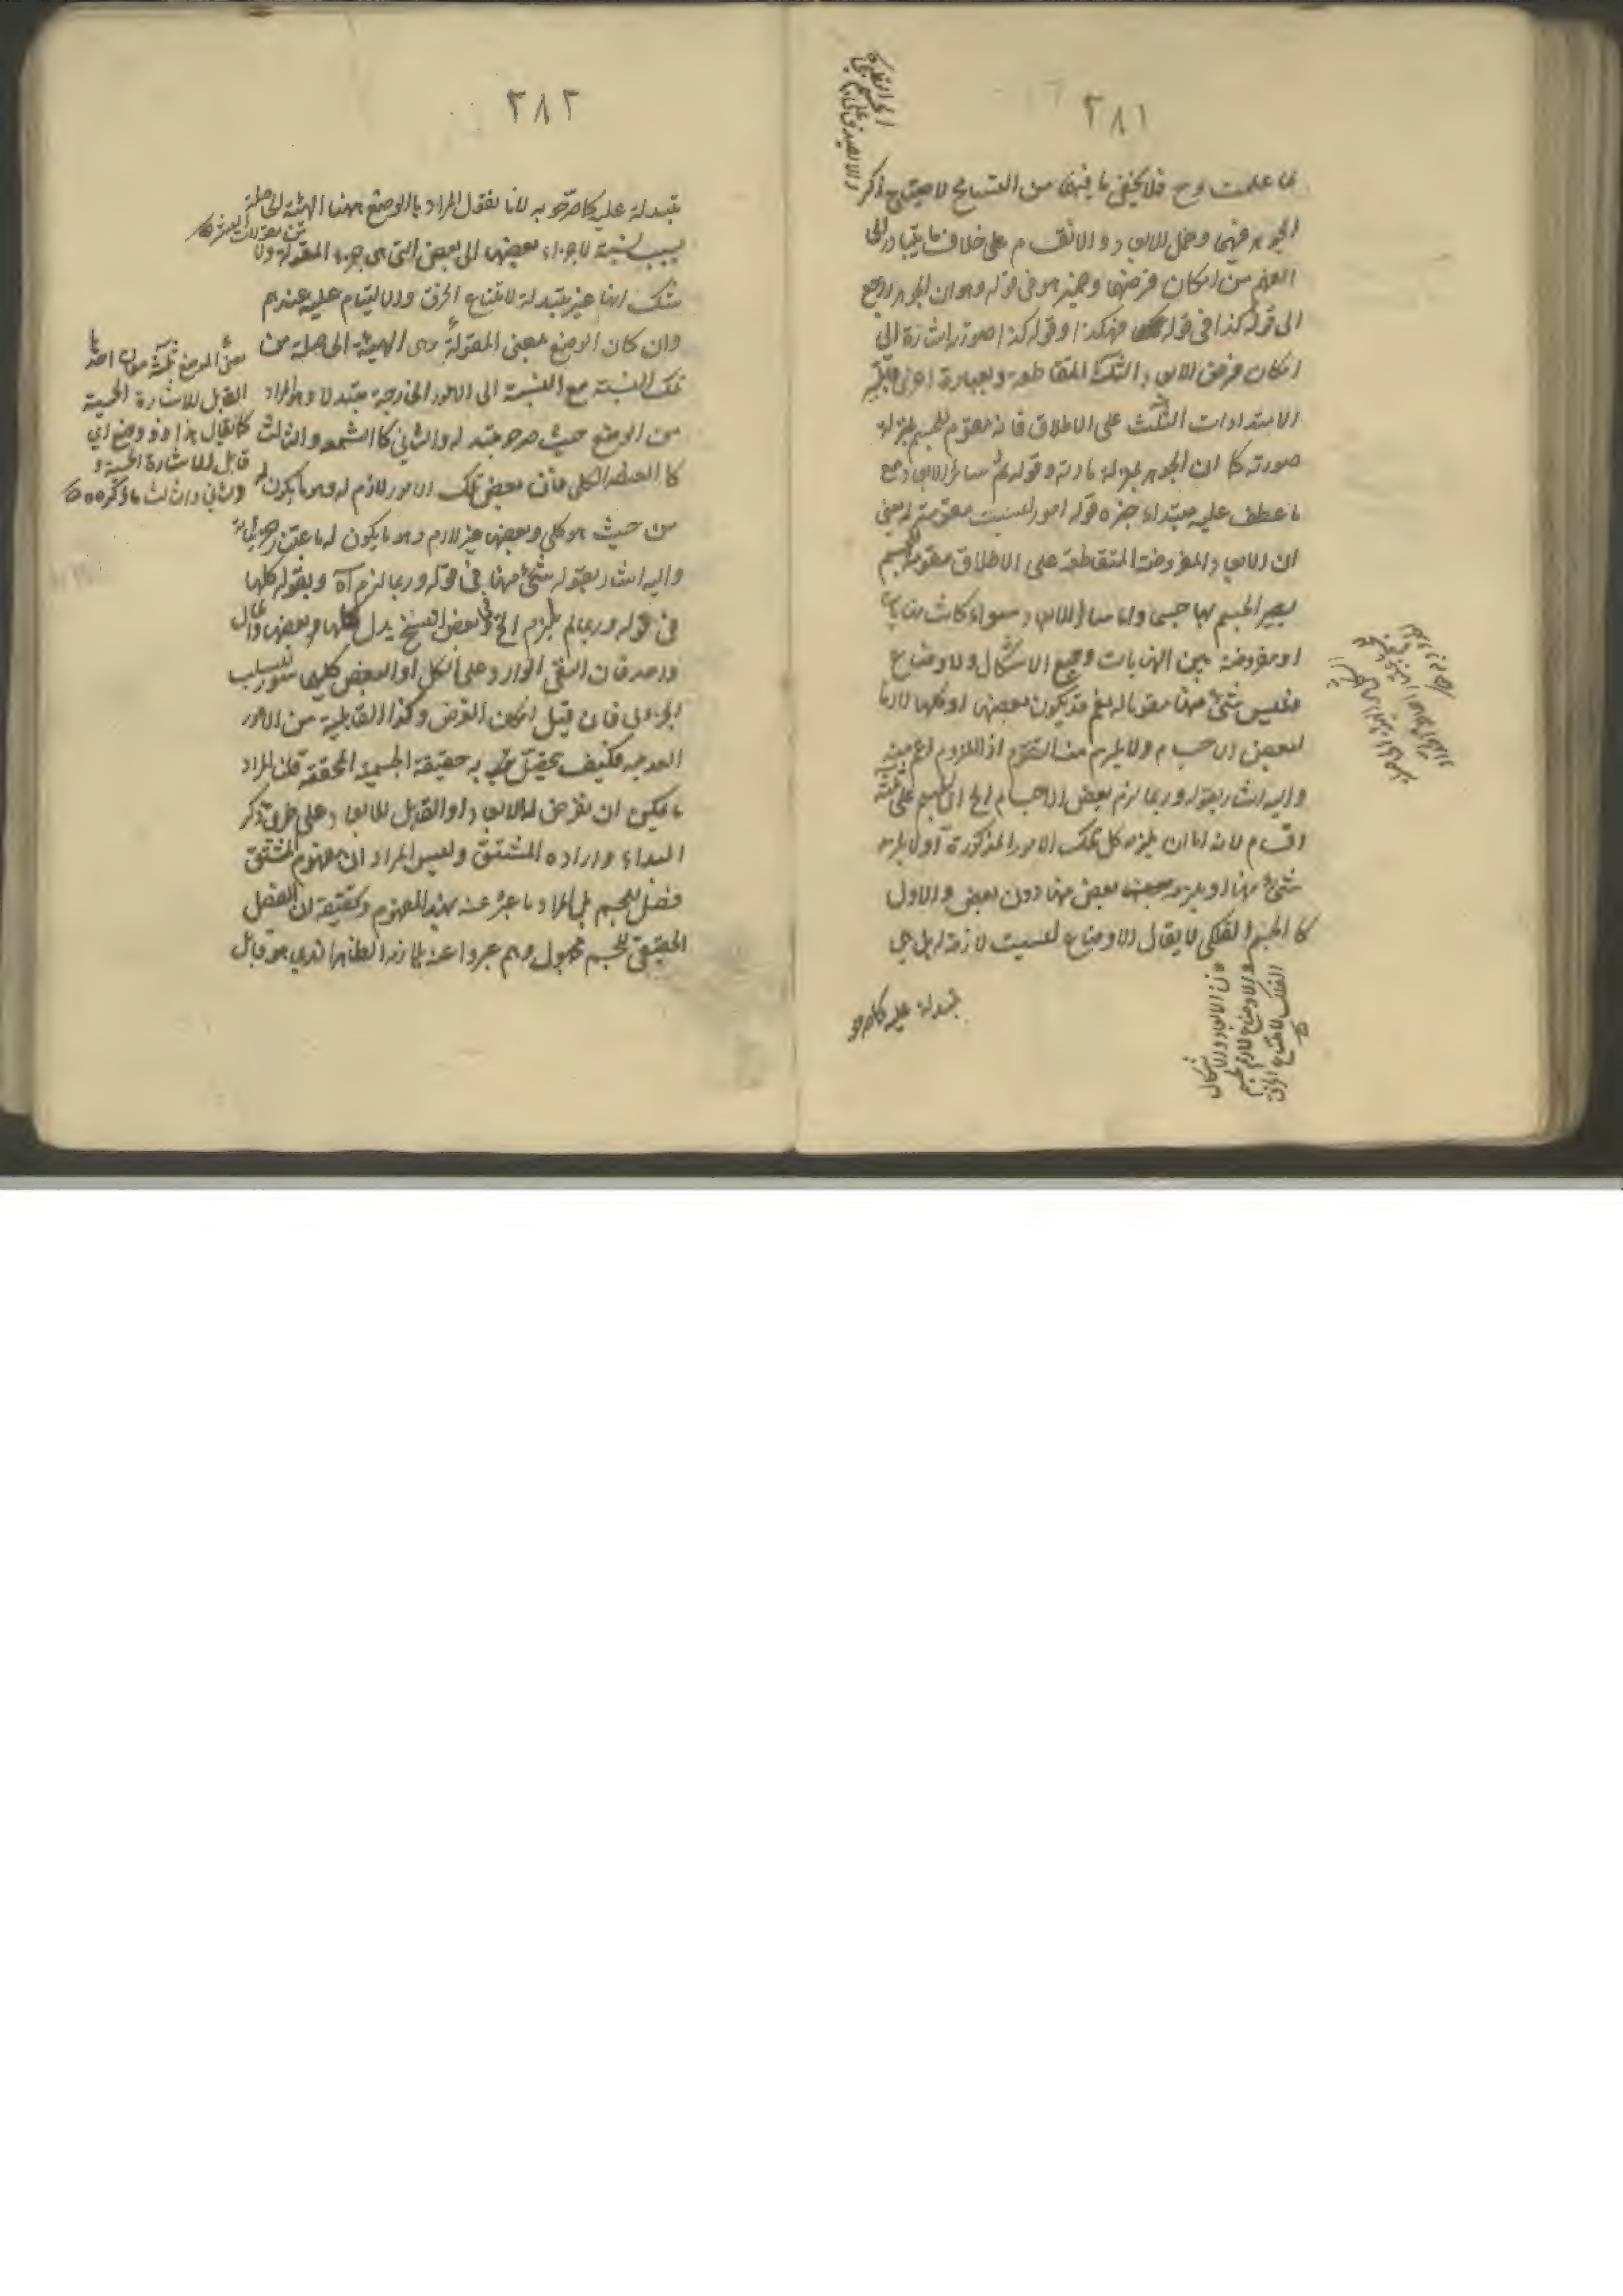 ٢٨١
علمت فلا يخفى ما فيهما من التسامح لاحتياج ذكر
الجوهر فيهما وحمل الابعاد والانقسام على خلاف ما يتبادر الى
الفهم من امكان فرضها وضمير هو فى قوله وهو ان الجوهر راجع
الى قوله كذا فى قوله هكذا وقوله كذا صورته اشارة الى
امكان فرض الابعاد الثلثة المتقاطعة وبعبارة اخرى
الامتدادات الثلث على الاطلاق فانه مقوم للجسم بمنزلة
صورته كما ان الجوهر بمنزلة مادته وقوله ثم سائر الابعاد مع
ما عطف عليه مبتداء خبره قوله امور ليست مقومة له يعنى
ان الابعاد المفروضة المتقاطعة على الاطلاق مقومة للجسم
يصير الجسم بها جسما واما سائر الابعاد سواء كانت نهايات
او مفروضة بين النهايات وجميع الاشكال والاوضاع
فليس شئ منها مقوما له نعم قد يكون بعضها او كلها لازما
لبعض الاجسام ولا يلزم منه التقوم اذ اللزوم اعم منه
واليه اشار بقوله وربما لزم بعض الاجسام الخ ان الجسم على ثلثة
اقسام لانه اما ان يلزمه كل تلك الامور المذكورة أو لا يلزمه
شئ منها او يلزمه بعض منها دون بعض والاول
كالجسم الفلكى لا يقال الاوضاع ليست لازمة له بل هى
فان الابعاد والاشكال
والاوضاع لازم لجسم
الفلك لامتناع الخرق
متبدلة عليه كما صرحوا
٢٨٢
متبدلة عليه كما صرحوا به لانا نقول المراد بالوضع ههنا الهيئة الحاصلة
بسبب نسبة الاجزاء بعضها الى بعض التى هى جزء المقولة ولا
شك انها غير متبدلة لامتناع الخرق والالتيام عليه عندهم
وان كان الوضع بمعنى المقولة وهى الهيئة الحاصلة من
تلك النسبة مع النسبة الى الامور الخارجة متبدلا وهو المراد
من الوضع حيث صرحو بتبدله والثانى كالشمعة والثالث
كالعنصر الكلى فان بعض تلك الامور لازم له وهو ما يكون له
من حيث هو كلى وبعضها غير لازم وهو ما يكون له باعتبار جزئياته
واليه اشار بقوله شئ منها فى قوله وربما لزم آه وبقوله كلها
فى قوله وربما لم يلزم الخ وفى بعض النسخ بدل كلها بعضها والمآل
واحد فان النفى الوارد على الكل او البعض كليهما سور لسلب
الجزئى فان قيل امكان الفرض وكذا القابلية من الامور
العدمية فكيف يحصل به حقيقة الجسمية المحققة قلنا المراد
ما يمكن ان يفرض له الابعاد او القابل للابعاد على طريق ذكر
المبداء وارادة المشتق وليس المراد ان مفهوم المشتق
فصل للجسم بل المراد ما عبر عنه بهذا المفهوم وتحقيقه ان الفصل
الحقيقى للجسم مجهول وهم عبروا عنه بلازمه الظاهر الذى هو قابل
من مقولات العشر
معنى الوضع ثلثة معان احدها
القابل للاشارة الحسية
كما يقال هذا ذو وضع اى
قابل للاشارة الحسية و
الثانى والثالث ما ذكره